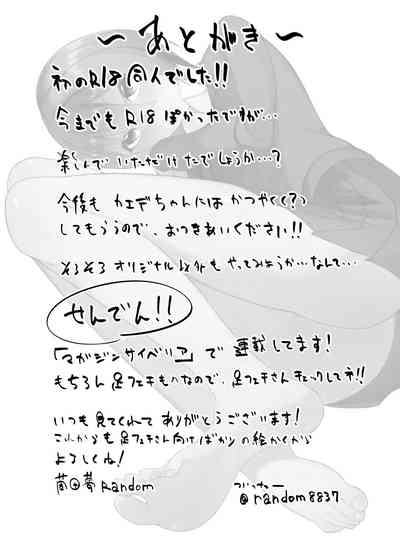 ～あとがき～
初のR18同人でした!!
今までもR18ぽかったですが…
楽しんでいただけたでしょうか…?
今後もカエデちゃんにはかつやく(?)
してもらうので、おつきあいください!!
そろそろオリジナル以外もやってみようか…なんて…
せんでん!!
「マガジンサイベリア」で連載してます!
もちろん足フェチものなので、足フェチさんチェックしてネ!!
いつも見てくれてありがとうございます!
これからも足フェチさん向けばかりの絵かくから
よろしくね!
Random
ついったー
@random8837